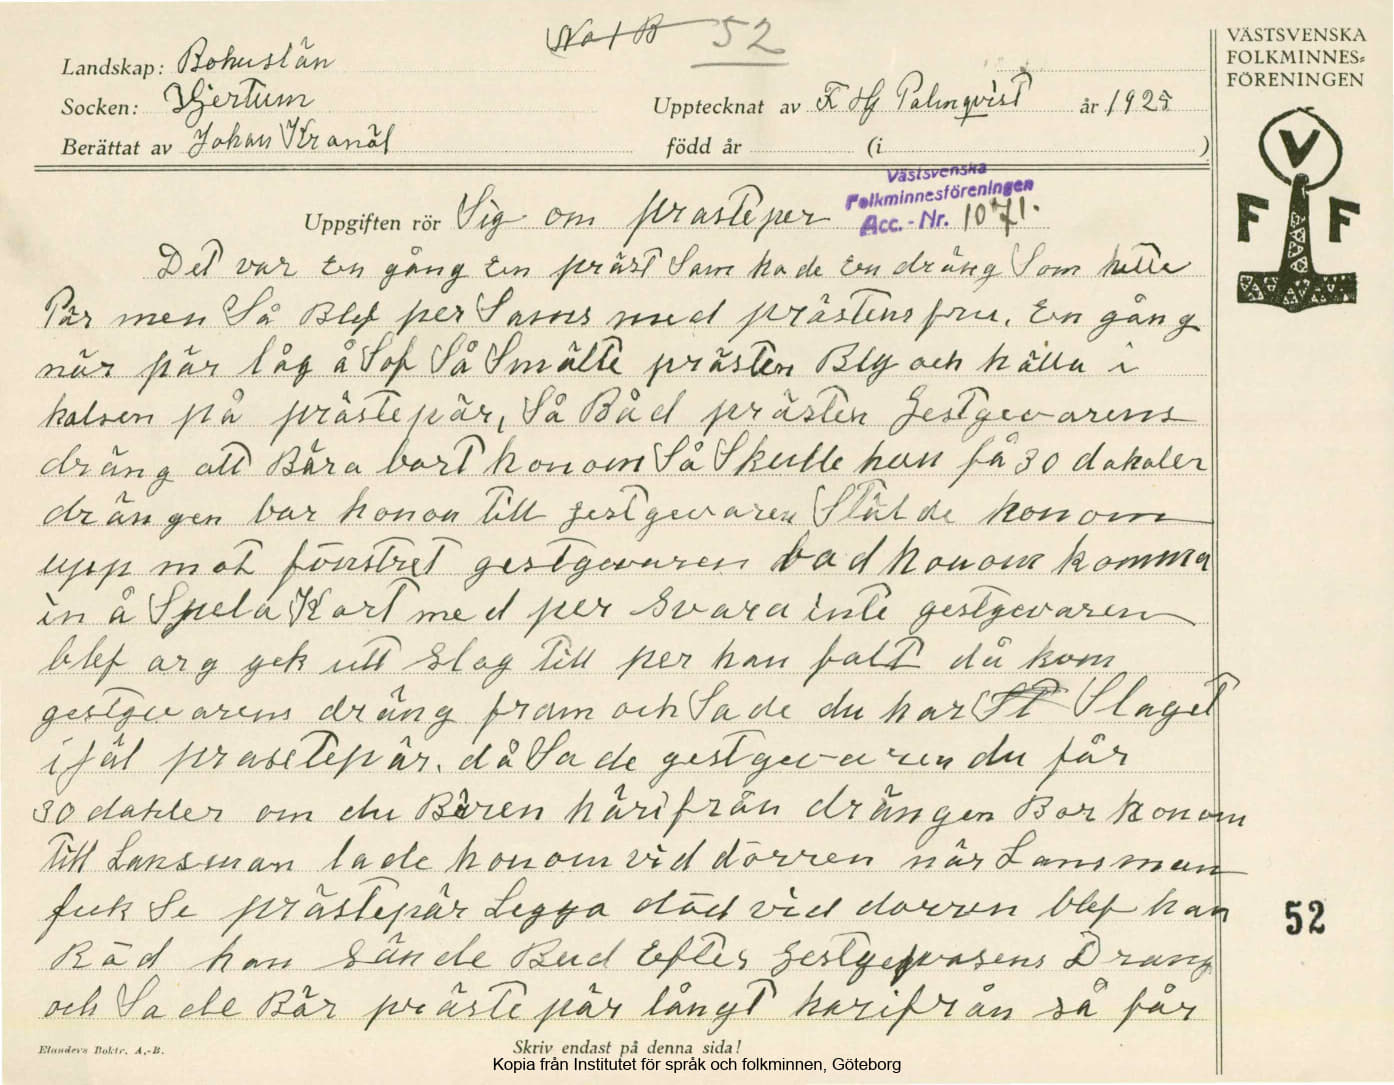 No 1 B 52
VÄSTSVENSKA
FOLKMINNES=
FÖRENINGEN
Landskap: Bohuslän
Socken: Hjertum
Upptecknat av F Hj Palmqvist år 1925
Berättat av Johan Kranäl
född år (i )
Västsvenska
Folkminnesföreningen
Acc. - Nr. 1071.
V
F F
Uppgiften rör Sig om prasteper
Det var En gång En präst Som hade En dräng Som hette
Pär men Så Blef per Sams med prästens fru. En gång
när pär låg å Sof Så Smälte prästen Bly och hälla i
halsen på prästepär, Så Båd prästen Gestgevarens
dräng att Bära bort honom Så Skulle han få 30 dakaler
drängen bar honom till gestgevaren Stälde honom
upp mot fönstret gestgevaren bad honom komma
in å Spela Kort med per Svara inte gestgevaren
blef arg gek utt Slog till per han falt då kom
gestgevarens dräng fram och Sade du har St Slaget
ifäl prastepär. då Sade gestgevaren du får
30 dahler om du Bären härifrån drängen Bar honom
till Lansman lade honom vid dörren när Lansman
feck Se prästepär Legga död vid dorren blef han
Räd han Sände Bud Efter Gestgevarens Drang
och Sade Bär präste pär långt harifrån så får
52
Elanders Boktr. A.-B.
Skriv endast på denna sida!
Kopia från Institutet för språk och folkminnen, Göteborg